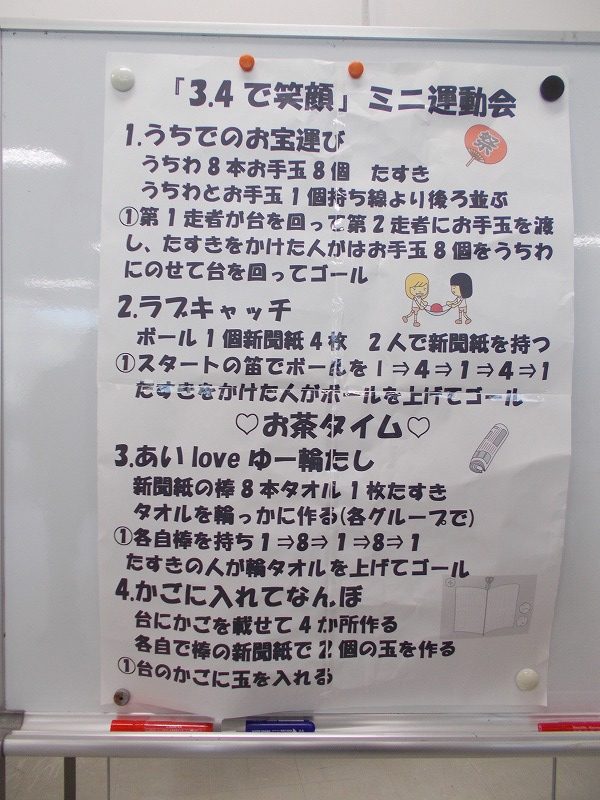 「3.4で笑顔」ミニ運動会
1.うちでのお宝運び
祭
うちわ8本お手玉8個 たすき
うちわとお手玉1個持ち線より後ろ並ぶ
①第1走者が台を回って第2走者にお手玉を渡
し、たすきをかけた人がはお手玉8個をうちわ
にのせて台を回ってゴール
2.ラブキャッチ
ボール1個新聞紙4枚 2人で新聞紙を持つ
①スタートの笛でボールを1⇒4⇒1⇒4⇒1
たすきをかけた人がボールを上げてゴール
♡お茶タイム♡
3.あいloveゆー輪たし
新聞紙の棒8本タオル1枚たすき
タオルを輪っかに作る(各グループで)
①各自棒を持ち1⇒8⇒1⇒8⇒1
たすきの人が輪タオルを上げてゴール
4.かごに入れてなんぼ
台にかごを載せて4か所作る
各自で棒の新聞紙で2個の玉を作る
①台のかごに玉を入れる